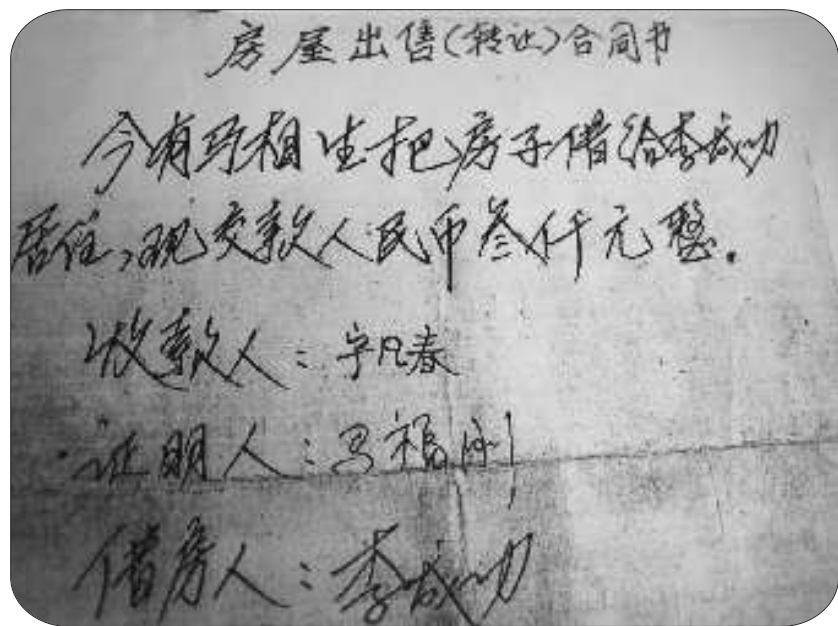 房屋出售(转让)合同书
今有马相生把房子借给李成功
居住,现交款人民币叁仟元整.
收款人:宇凡春
证明人:马福刚
借房人:李成功